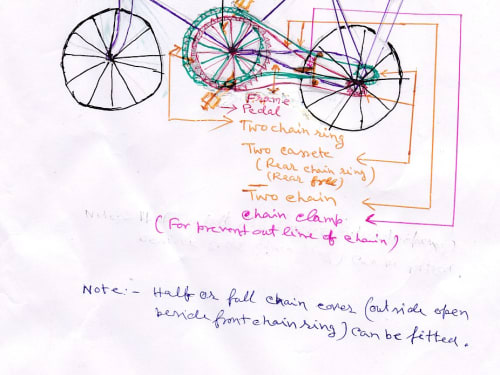 Frame
Pedal
Two chain ring
Two cassete
(Rear chain ring)
(Rear free)
Two chain
chain clamp
(For prevent out line of chain)
Note:- Half or full chain cover (outside open
beside front chain ring) can be fitted.